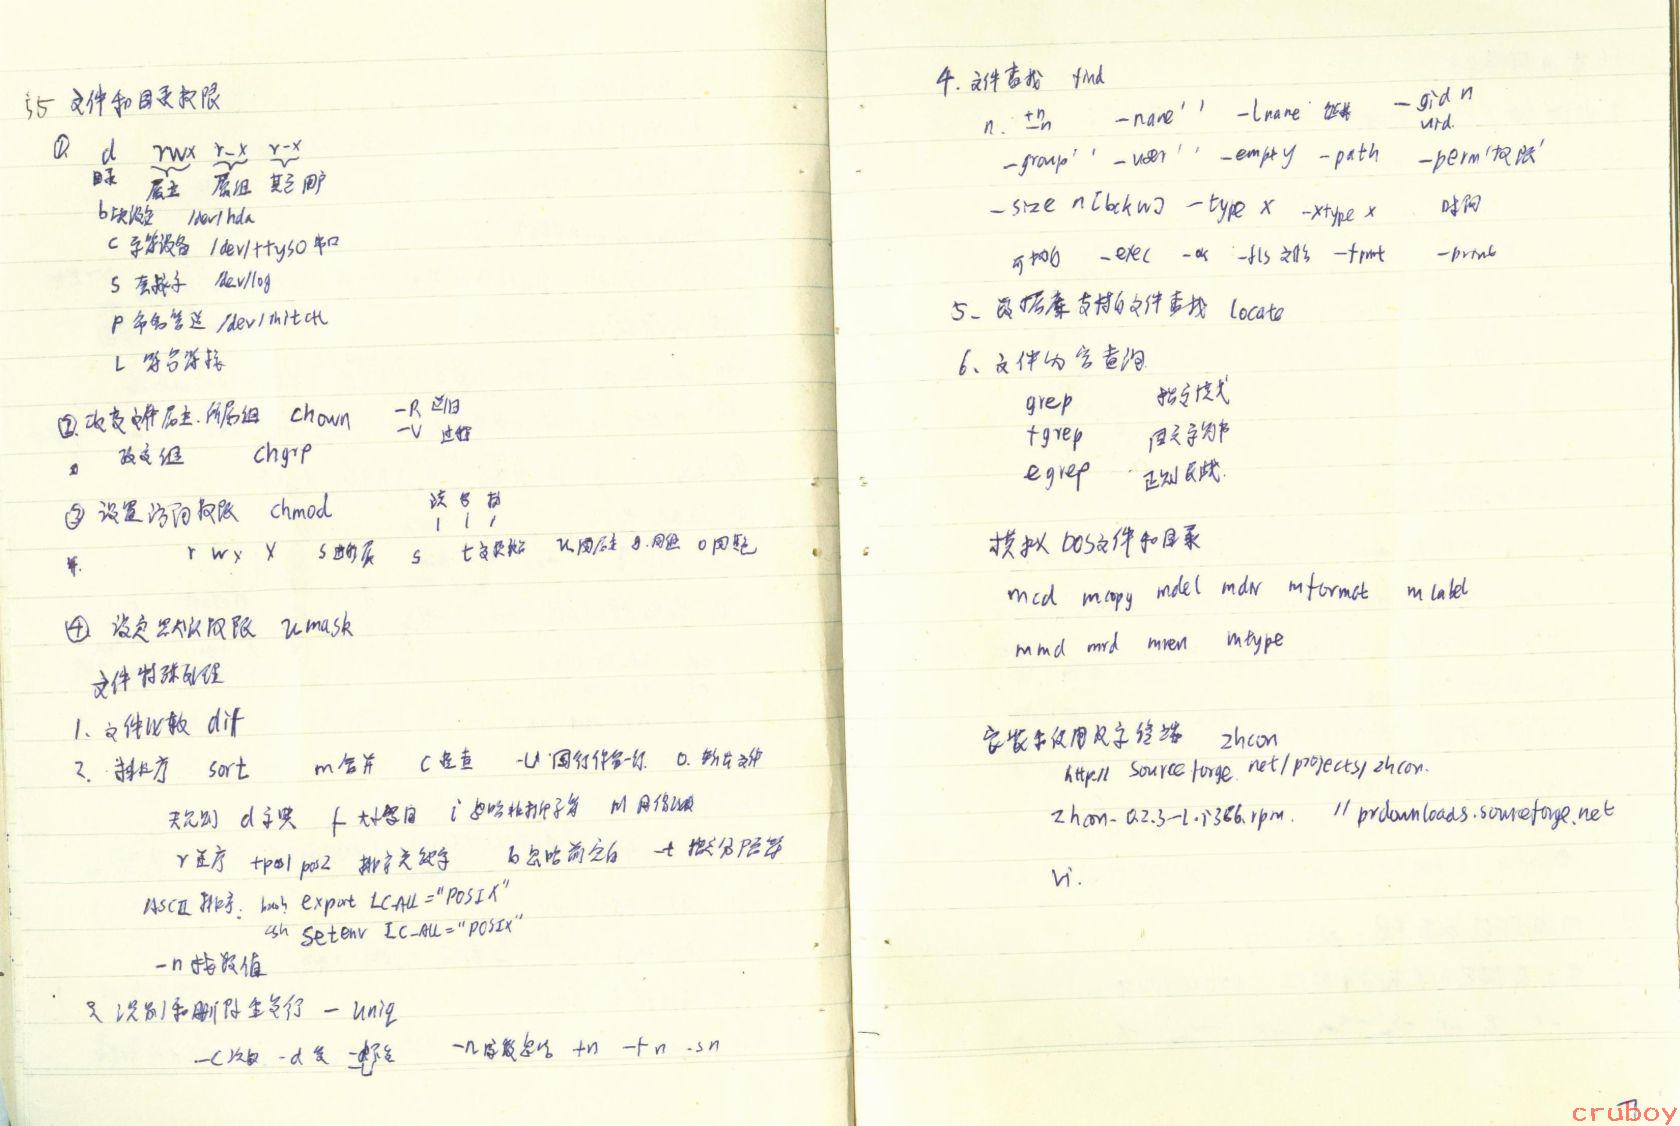 §5 文件和目录权限
① d rwx r-x r-x
目录 属主 属组 其它用户
b 块设备 /dev/hda
c 字符设备 /dev/ttyS0 串口
s 套接字 /dev/log
p 命名管道 /dev/initctl
L 符号链接
② 改变文件属主.所属组 chown -R 递归
-v 过程
改变组 chgrp
③ 设置访问权限 chmod 读 写 执
r w x X s s t u 同属主 g.同组 o 同其它
④ 设定默认权限 umask
文件特殊处理
1、文件比较 dif
2、排序 sort m 合并 c 检查 -u 同行作为一行 o.输出文件
d 字典 f 大小字母 i M 月份
r 逆序 +pos1 pos2 排序关键字 b 忽略前空白 -t 指定分隔符
ASCII 排序: bash export LC_ALL="POSIX"
csh setenv LC_ALL="POSIX"
-n 按数值
3 识别和删除重复行 - uniq
-c 次数 -d 重 +n -f n -s n
4. 文件查找 find
n. +n -n -name' ' -lname 链接 -gid n uid.
-group' ' -user' ' -empty -path -perm'权限'
-size n[bckw] -type x -xtype x 时间
-exec -ok -fls 文件 -fprint -print
5、数据库支持的文件查找 locate
6、文件内容查询
grep 指定模式
fgrep 固定字符串
egrep 正则表达式
模拟 DOS文件和目录
mcd mcopy mdel mdir mformat mlabel
mmd mrd mren mtype
安装和使用汉字终端 zhcon
http:// sourceforge.net/projects/zhcon.
zhcon-0.2.3-1.i386.rpm. //prdownloads.sourceforge.net
vi.
cruboy